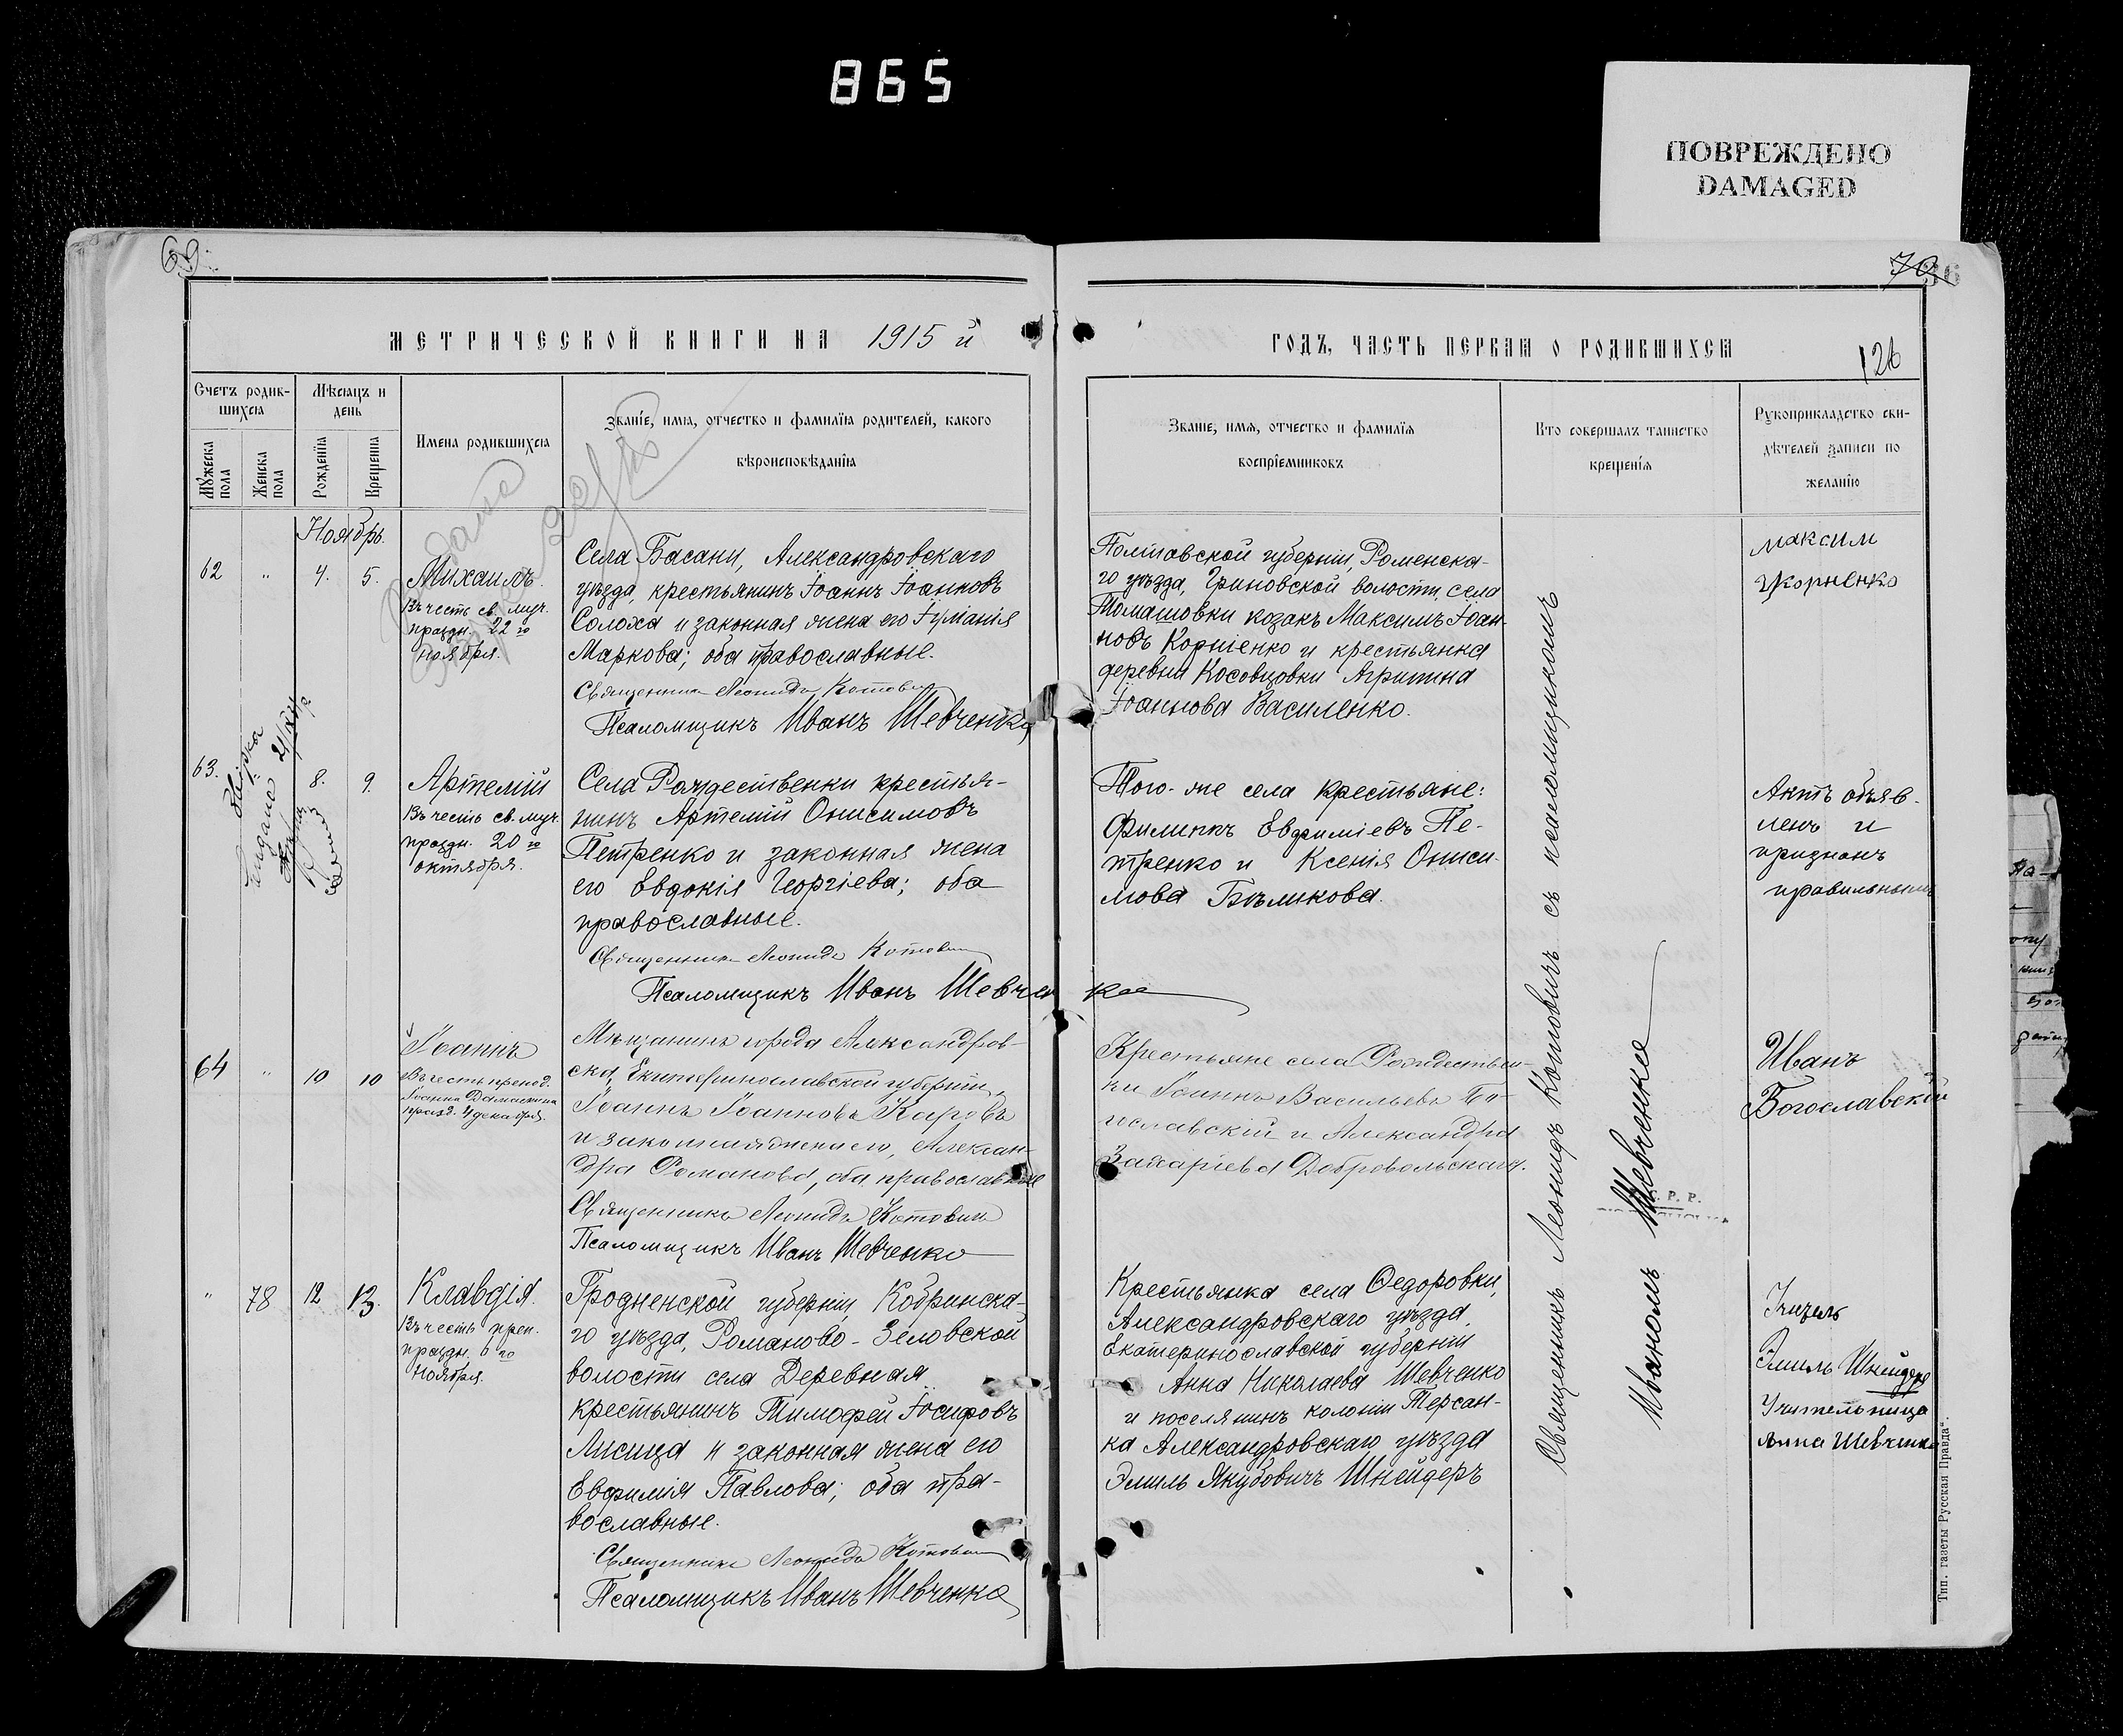 865
ПОВРЕЖДЕНО
DAMAGED
69.
70
126
МЕТРИЧЕСКОЙ КНИГИ НА 1915 й
ГОДЪ, ЧАСТЬ ПЕРВАЯ О РОДИВШИХСЯ
Счетъ родив-
шихся
Мужеска пола
Женска пола
Мѣсяцъ и
день
Рожденія
Крещенія
Имена родившихся
Званіе, имя, отчество и фамилія родителей, какого
вѣроисповѣданія
Званіе, имя, отчество и фамилія
воспріемниковъ
Кто совершалъ таинство
крещенія
Рукоприкладство сви-
дѣтелей записи по
желанію
Ноябрь
62 " 4. 5.
Михаилъ.
Въ честь св. муч.
праздн. 22 го
ноября.
Села Басани, Александровскаго
уѣзда, крестьянинъ Іоаннъ Іоанновъ
Солоха и законная жена его
Маркова; оба православные.
Священникъ Леонидъ Котовичъ
Псаломщикъ Иванъ Шевченко
Полтавской губерніи, Роменска-
го уѣзда, волости, села
Томашовки козакъ Максимъ Іоан-
новъ Корніенко и крестьянка
деревни Косовцовки Агрипина
Іоаннова Василенко.
максим
Корненко
63. 8. 9.
Артемій
Въ честь св. муч.
праздн. 20 го
октября.
Села Рождественки крестья-
нинъ Артемій Онисимовъ
Петренко и законная жена
его Евдокія Георгіева; оба
православные.
Священникъ Леонидъ Котовичъ
Псаломщикъ Иванъ Шевченко
Того-же села крестьяне:
Филиппъ Евфиміевъ Пе-
тренко и Ксенія Ониси-
мова Бѣликова.
Актъ объяв-
ленъ и
признанъ
правильнымъ
64 " 10 10
Іоаннъ
Въ честь препод.
Іоанна Дамаскина
празд. 4 декабря.
Мѣщанинъ города Александров-
ска, Екатеринославской губерніи,
Іоаннъ Іоанновъ Каровъ
и законная жена его, Алексан-
дра Романова, оба православные
Священникъ Леонидъ Котовичъ
Псаломщикъ Иванъ Шевченко
Крестьяне села Рождествен-
ки Іоаннъ Васильевъ Бо-
гославскій и Александра
Захаріева Добровольская.
Иванъ
Богославский
" 78 12 13.
Клавдія.
Въ честь преп.
праздн. 6 го
ноября.
Гродненской губерніи, Кобринска-
го уѣзда, Романово-Зеловской
волости села Деревная
крестьянинъ Тимофей Іосифовъ
Лисица и законная жена его
Евфимія Павлова; оба пра-
вославные.
Священникъ Леонидъ Котовичъ
Псаломщикъ Иванъ Шевченко
Крестьянка села Федоровки,
Александровскаго уѣзда,
Екатеринославской губерніи
Анна Николаева Шевченко
и поселянинъ колоніи Терсан-
ка Александровскаго уѣзда
Эмиль Якубовичъ Шнейдеръ
Эмиль Шнейдеръ
Учительница
Анна Шевченко
Священникъ Леонидъ Котовичъ съ псаломщикомъ
Иваномъ Шевченко
Тип. газеты Русская Правда".